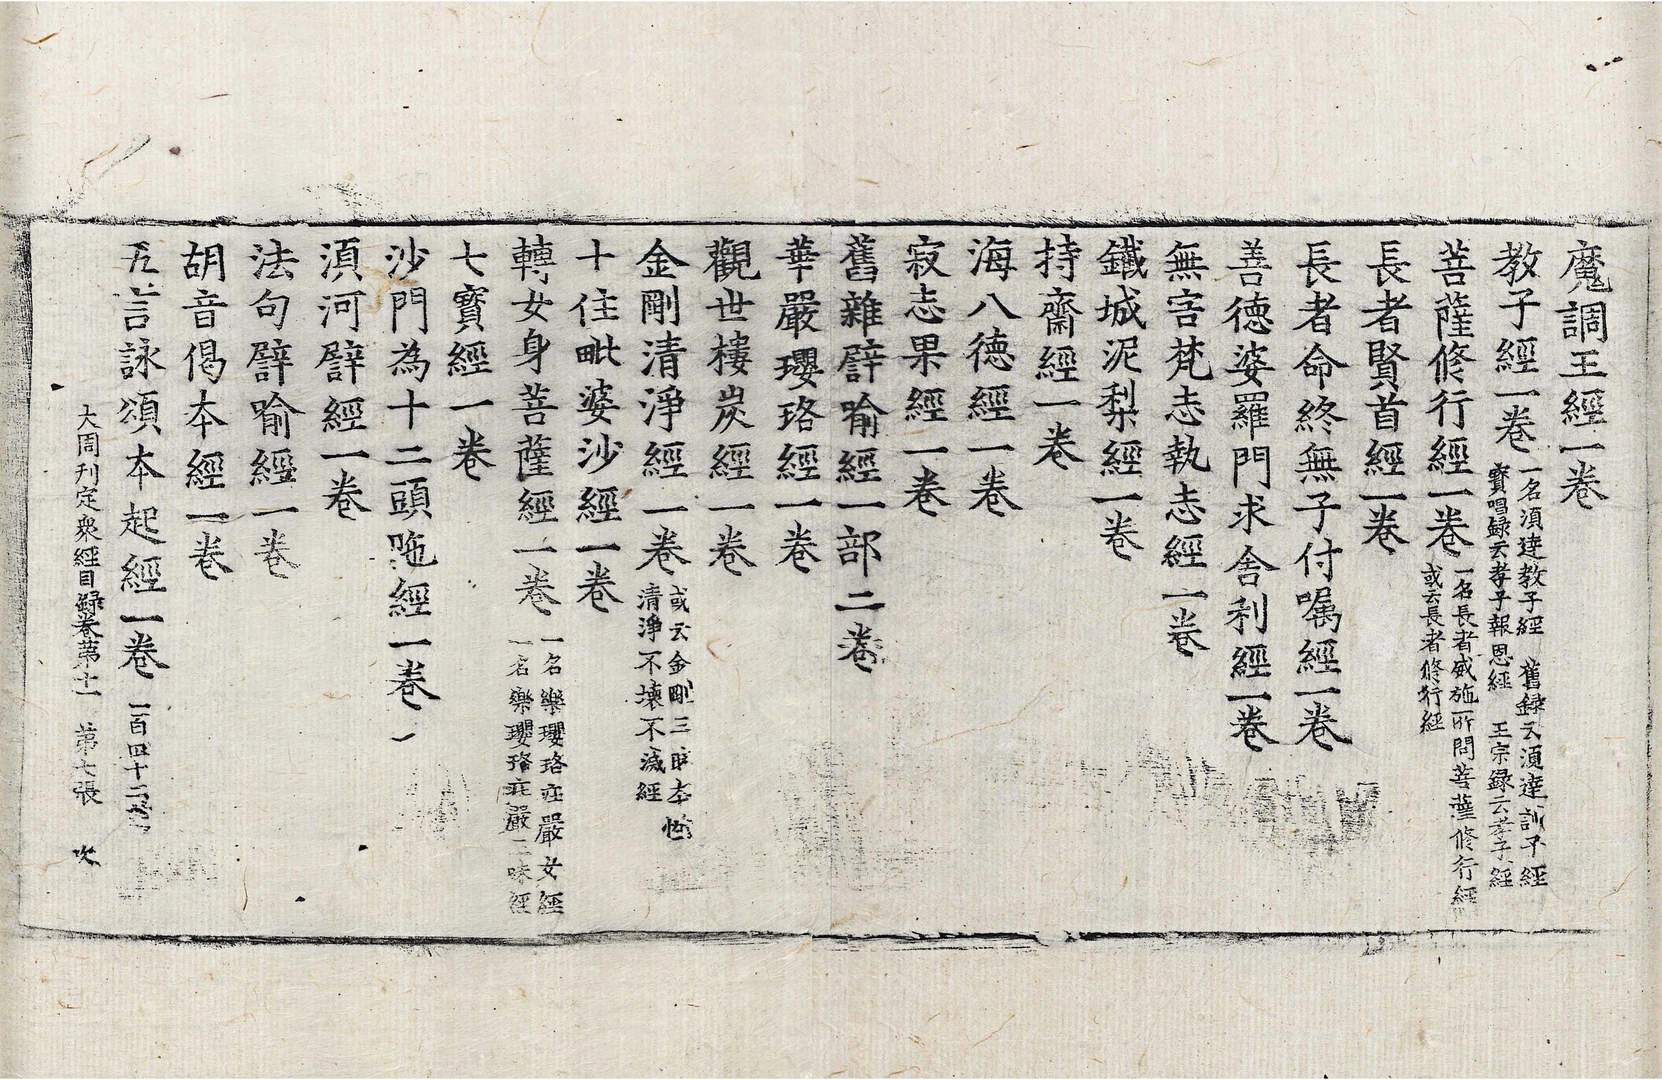 魔調王經一卷
教子經一卷
一名須達教子經 舊録云須達訓子經
寳唱録云孝子報恩經 王宗録云孝子經
菩薩修行經一卷
一名長者威施所問菩薩修行經
或云長者修行經
長者賢首經一卷
長者命終無子付囑經一卷
善德婆羅門求舍利經一卷
無害梵志執志經一卷
鐵城泥犁經一卷
持齋經一卷
海八德經一卷
寂志果經一卷
舊雜譬喻經一部二卷
華嚴瓔珞經一卷
觀世樓炭經一卷
金剛清淨經一卷
或云金剛三昧本性
清淨不壞不滅經
十住毗婆沙經一卷
轉女身菩薩經一卷
一名樂瓔珞莊嚴女經
一名樂瓔珞莊嚴三昧經
七寳經一卷
沙門為十二頭陁經一卷
湏河譬經一卷
法句譬喻經一卷
胡音偈本經一卷
五言詠頌本起經一卷
一百四十二
大周刊定衆經目録卷第十一 第七張 吹